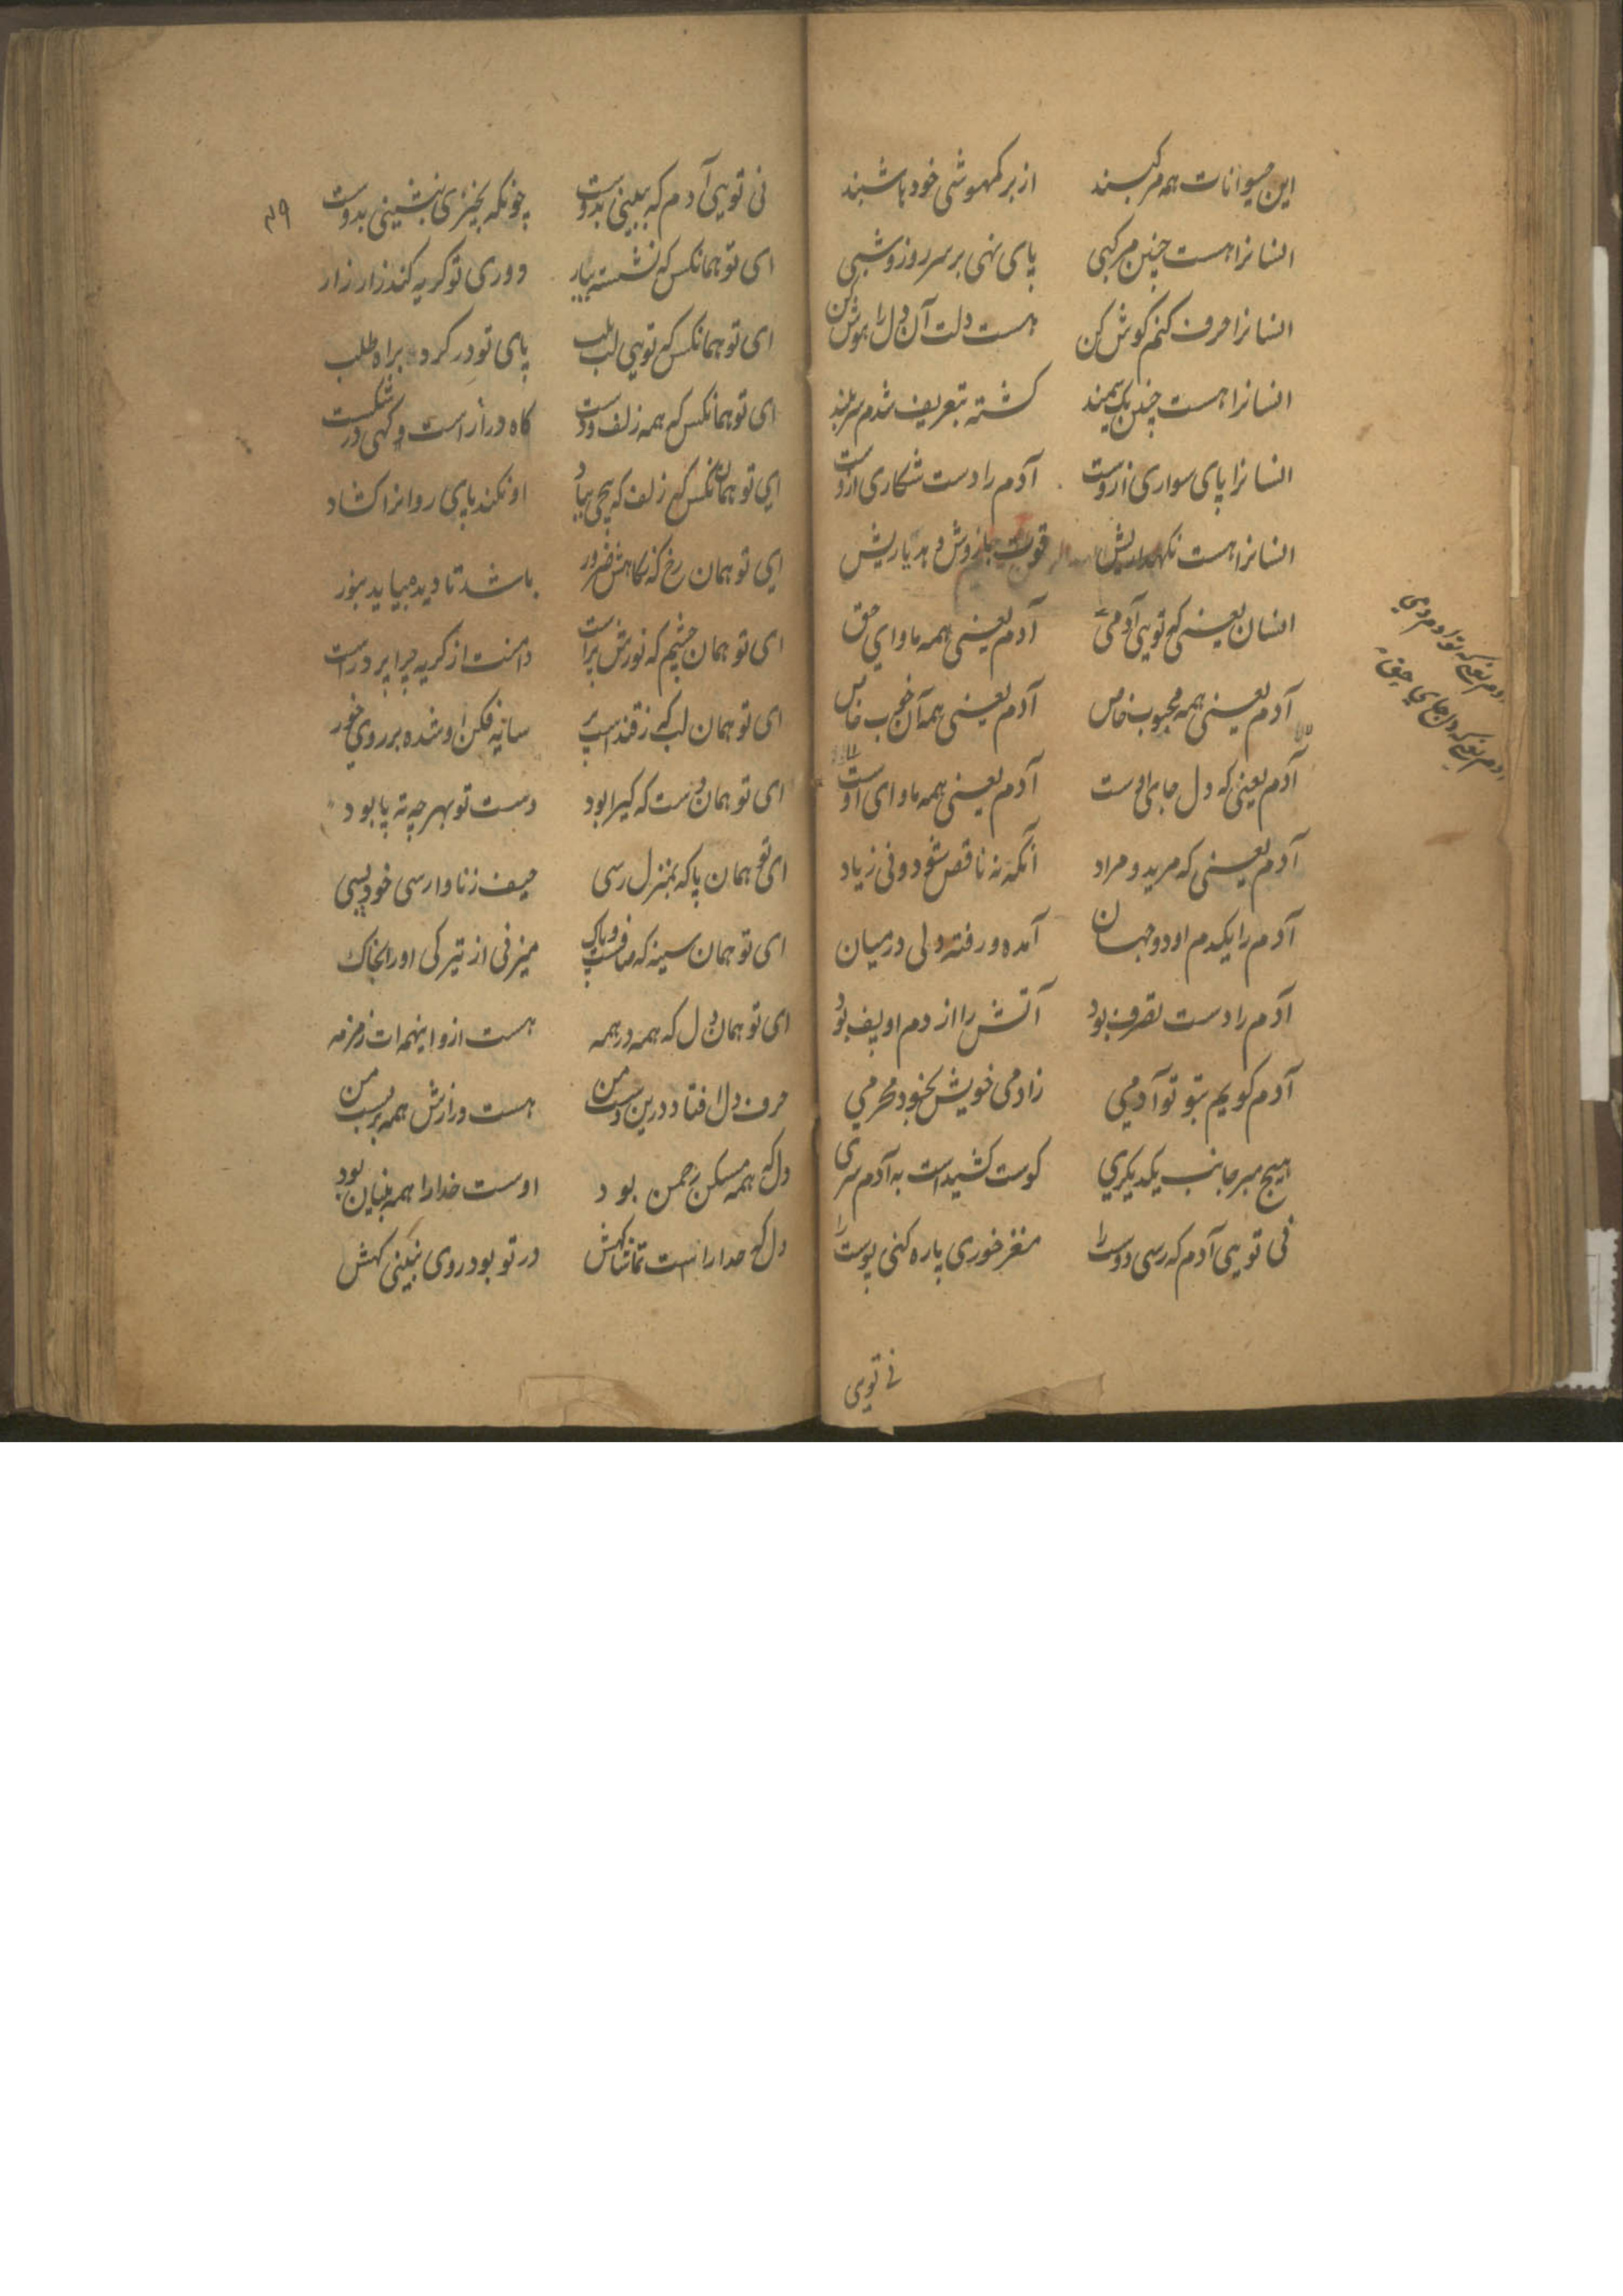 این حیوانات همه مرکبند از بر کمهوشی خود باشبند
انسانرا هست چنین مرکبی پای نهی بر سر روز و شبی
انسانرا حرف کنم کوش کن هست دلت آن دل را هوش کن
انسانرا هست چنین یک سمند کشته بتعریف شدم سربلند
انسانرا پای سواری ازوست آدم را دست شکاری ازوست
انسانرا هست نکهداریش قوت بازوش دهد یاریش
انسان یعنی که تویی آدمی آدم یعنی همه ماوای حق
آدم یعنی همه محبوب خاص آدم یعنی همه آن خوب خاص
آدم یعنی که دل جای اوست آدم یعنی همه ماوای اوست
آدم یعنی که مرید و مراد آنکه نه ناقص شود و نی زیاد
آدم را یکدم او دو جهان آمده و رفته ولی در میان
آدم را دست تصرف بود آتش را از دم او پف بود
آدم کویم بتو تو آدمی زادمی خویش بخود محرمی
هیچ مبر جانب یکدیکری کوست کشیداست به آدم سری
نی تویی آدم که رسی دوست را مغز خوری پاره کنی پوست را
نی تویی
آدم یعنی که تو آدمی
آدم یعنی که دل جای حق
۳۹
نی تویی آدم که ببینی بدوست چونکه بخیزی بنشینی بدوست
ای تو همانکس که نشسته بیار دوری تو کریه کند زار زار
ای تو همانکس که تویی لب بلب پای تو در کرد براه طلب
ای تو همانکس که همه زلف دوست کاه دراز است و کهی در شکست
ای تو همانکس که زلف که پیچی بیاد او نکند پای روانرا کشاد
ای تو همان رخ که نکاهش ضرور باشد تا دیده بیاید بنور
ای تو همان چشم که نورش براست دامنت از کریه چرا پر دراست
ای تو همان لب که ز قند است پر سایه فکن او شده بر روی خور
ای تو همان دست که کیرا بود دست تو بهر چه ته پا بود
ای تو همان پا که بمنزل رسی حیف زنا وارسی خود پسی
ای تو همان سینه که صافست و پاک میزنی از تیرکی او را بخاک
ای تو همان دل که همه در همه هست ازو اینهمه ات زمزمه
حرف دل افتاد درین دست من هست درازش همه بر لب من
دل که همه مسکن رحمن بود اوست خدا را همه بنیان بود
دل که خدا را است تماشا کهش در تو بود روی نبینی کهش